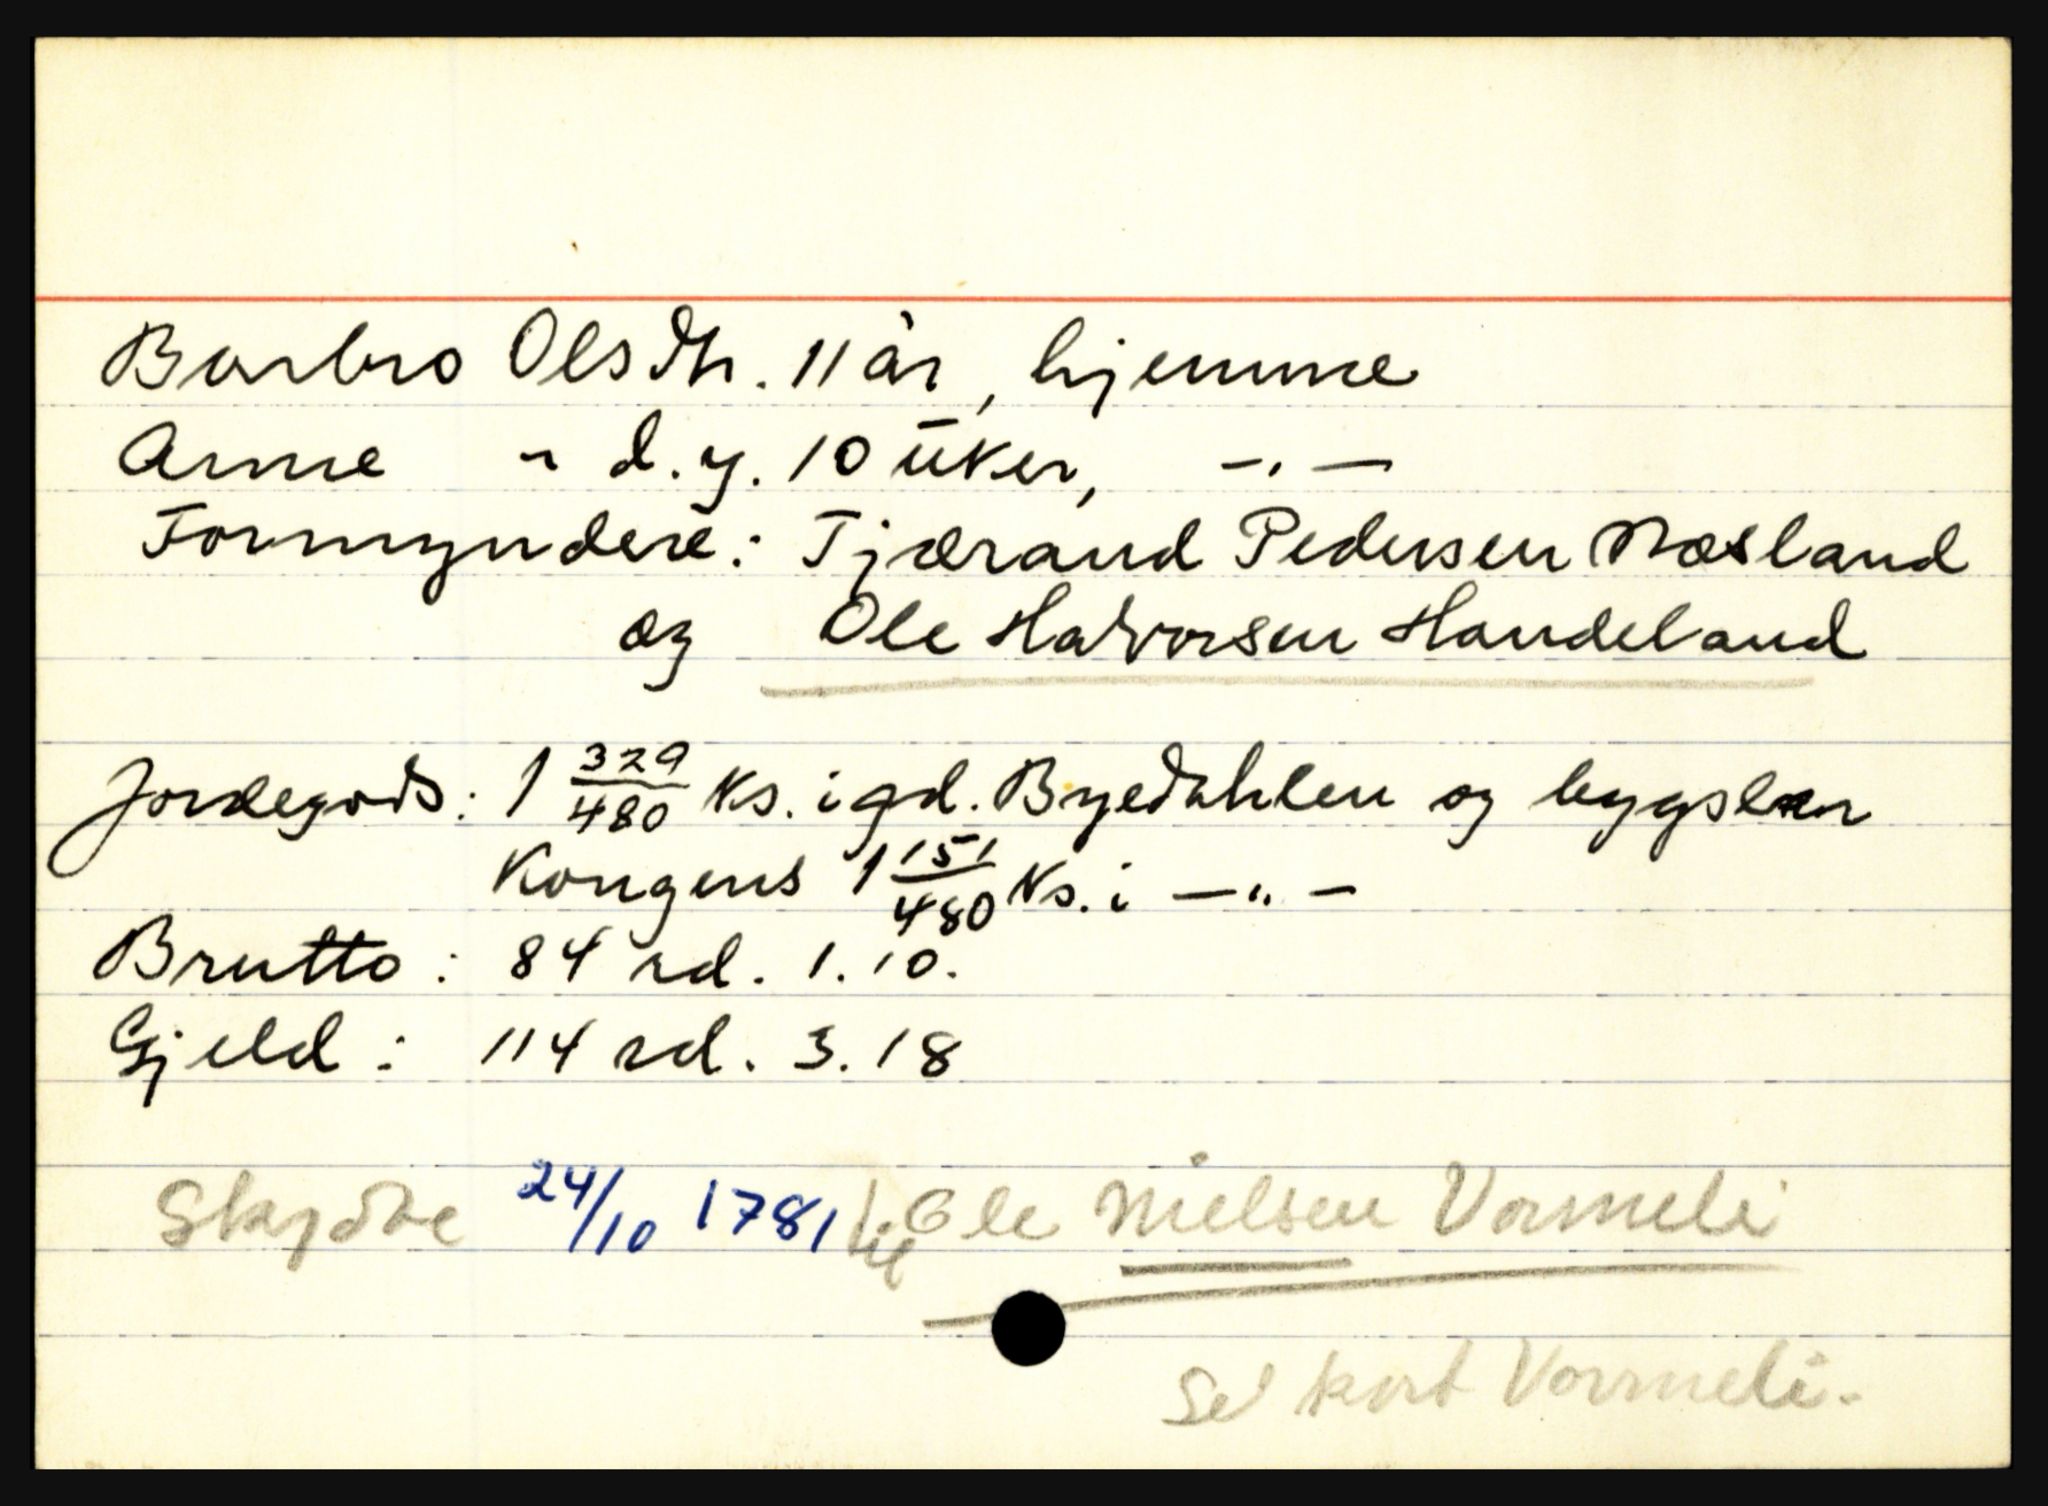 Barbro Olsdtr. 11 år, hjemme
Anne " d.y. 10 uker, - " -
Formyndere: Tjærand Pedersen Næsland
og Ole Halvorsen Handeland
Jordegods: 1 329/480 ks. i gd. Byedahlen og bygsler
Kongens 1 151/480 ks. i - " -
Brutto: 84 rd. 1. 10.
Gjeld: 114 rd. 3. 18
Skjøte 24/10 1781 til Ole Nielsen Vormeli
Se kort Vormeli.